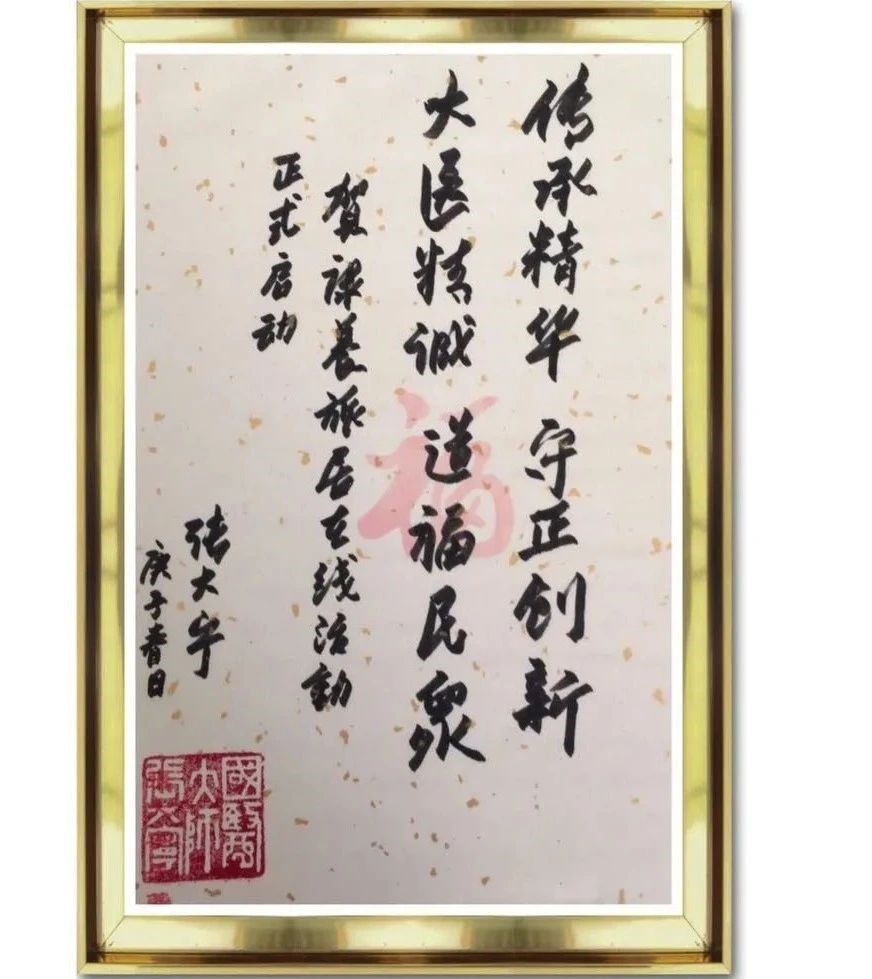 传承精华 守正创新
大医精诚 送福民众
贺课养旅居在线活动
正式启动
张大宁
庚子春日
國醫
大師
張大寧
福